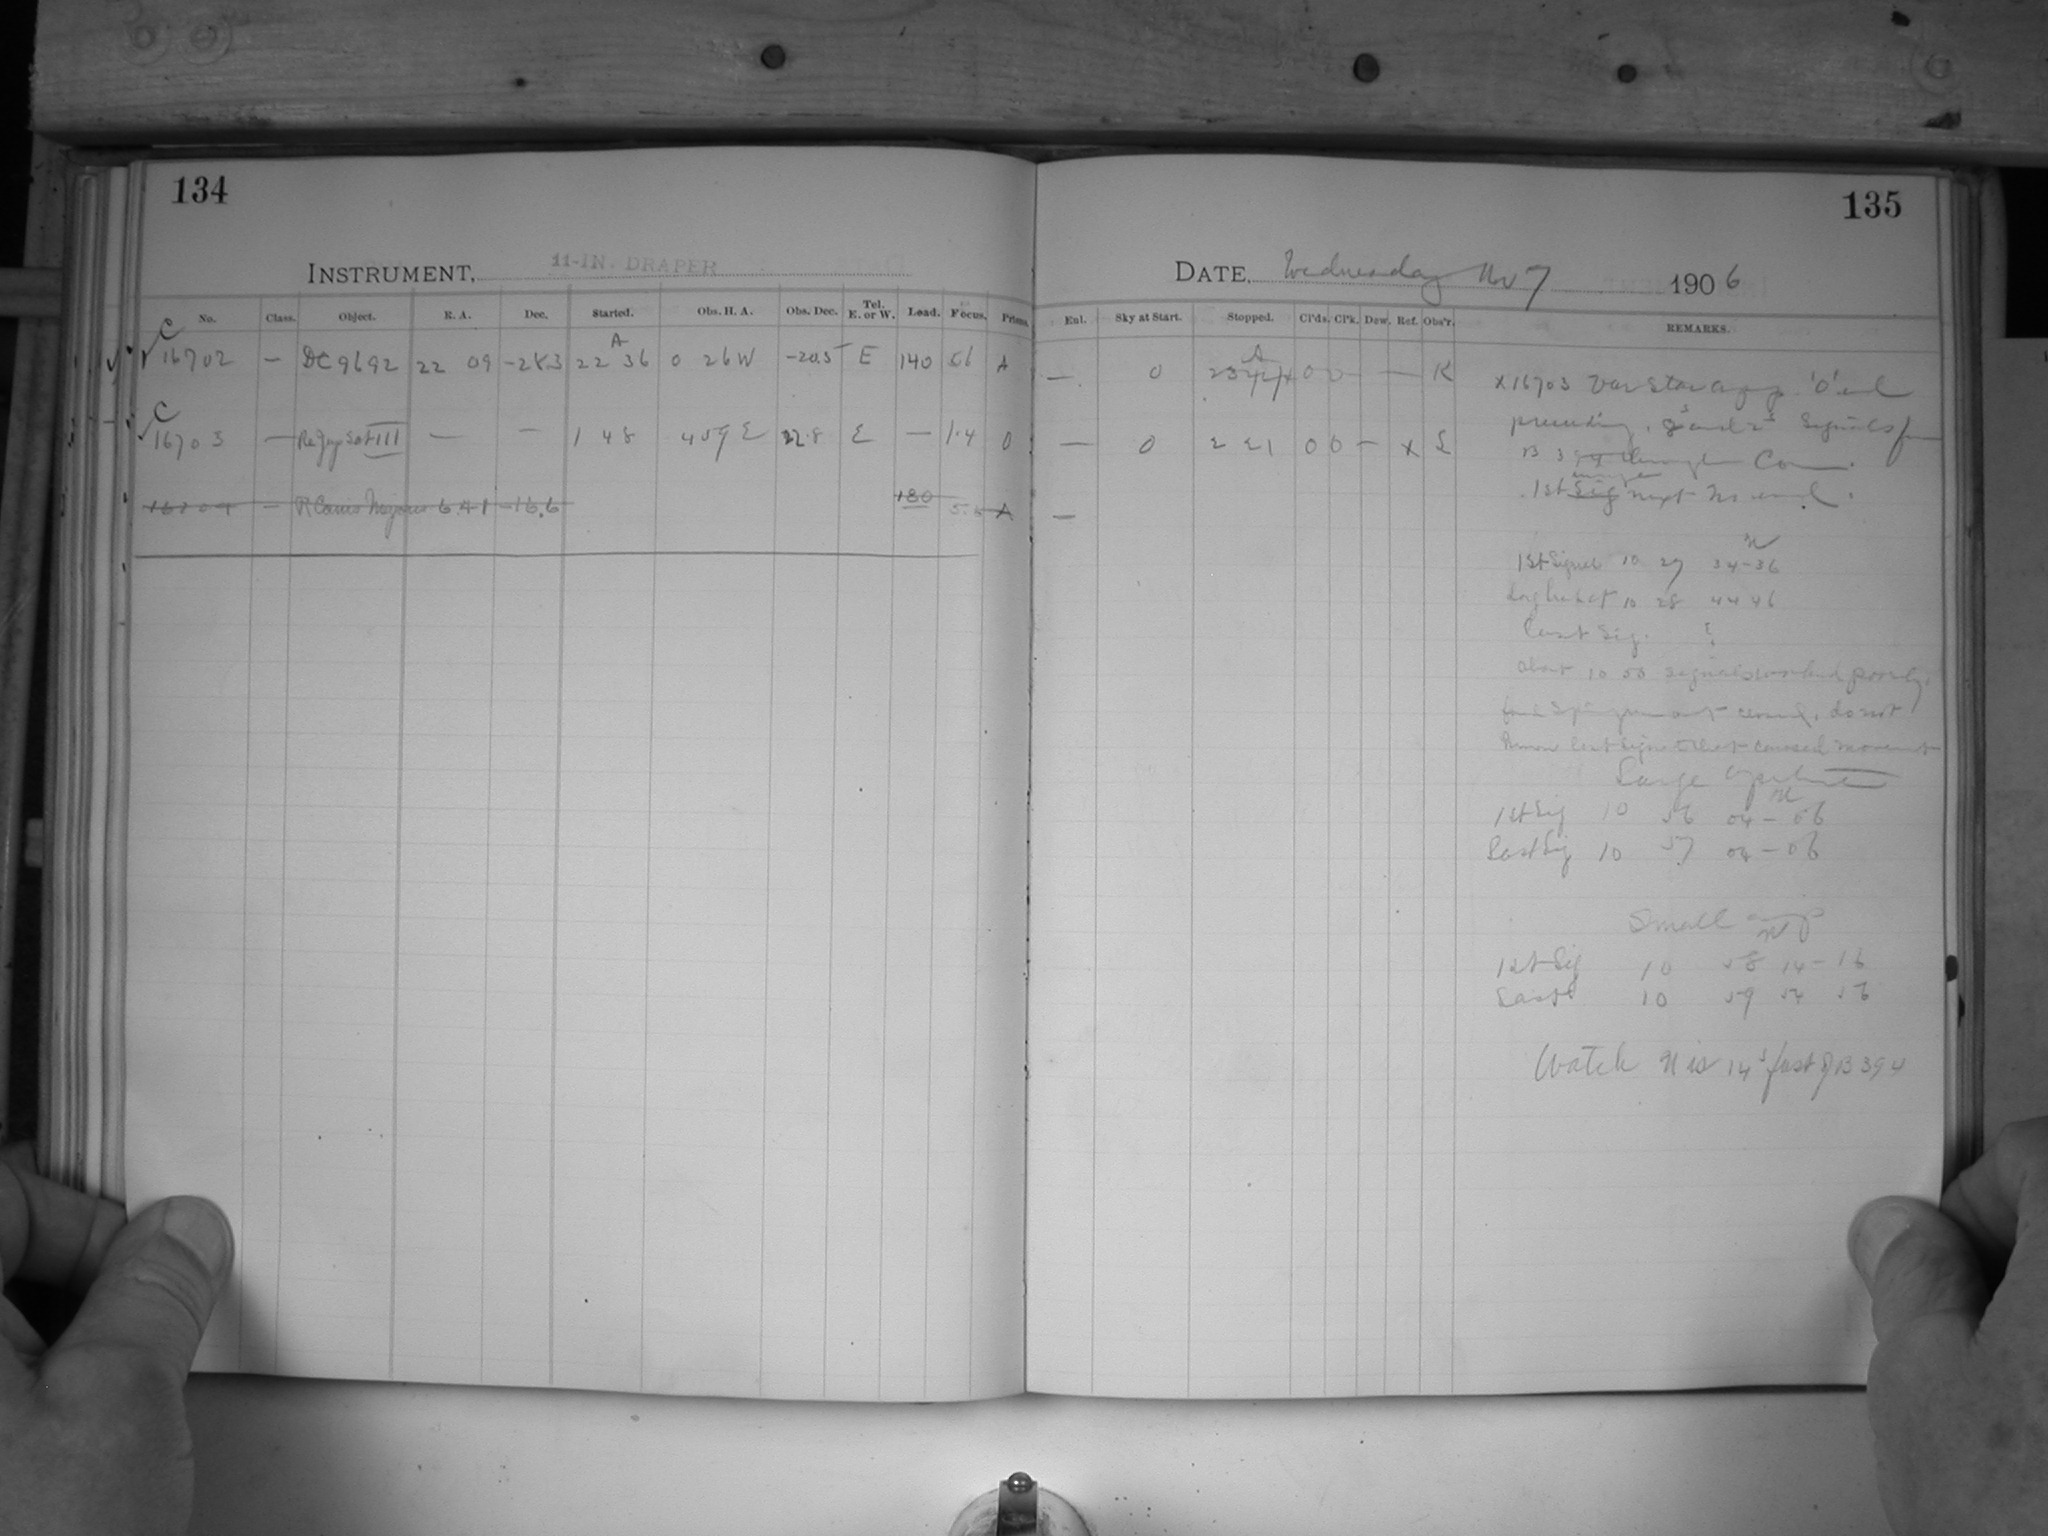 134
135
INSTRUMENT, 11-IN. DRAPER
DATE, Wednesday Nov 7 1906
No. Class. Object. R. A. Dec. Started. Obs. H. A. Obs. Dec. Tel. E. or W. Load. Focus. Prisms.
Enl. Sky at Start. Stopped. Cl'ds. Cl'k. Dew. Ref. Obs'r. REMARKS.
C A
16702 — DC 9692 22 09 -28.3 22 36 0 26 W -20.5 E 140 5.6 A
— 0 0 0 — — K
C
16703 — Jup Sat III — — 1 48 4 59 E 22.8 E — 1.4 0
— 0 2 21 0 0 — x L
16704 — R Canis Majoris 6.41 -16.6 180 5.6 A
—
x 16703 Var Star app. 'O' end
preceding. Signals
B 394 through
1st Sig next N end.
1st Signal 10 27 34-36
10 28 44 46
Last Sig. ?
about 10 50 signals worked poorly,
do not
last signal that caused movement
Large
1st Sig 10 56 04 - 06
Last Sig 10 57 04 - 06
Small ap
1st Sig 10 58 14-16
Last 10 59 54 56
Watch N is 14s fast of B 394